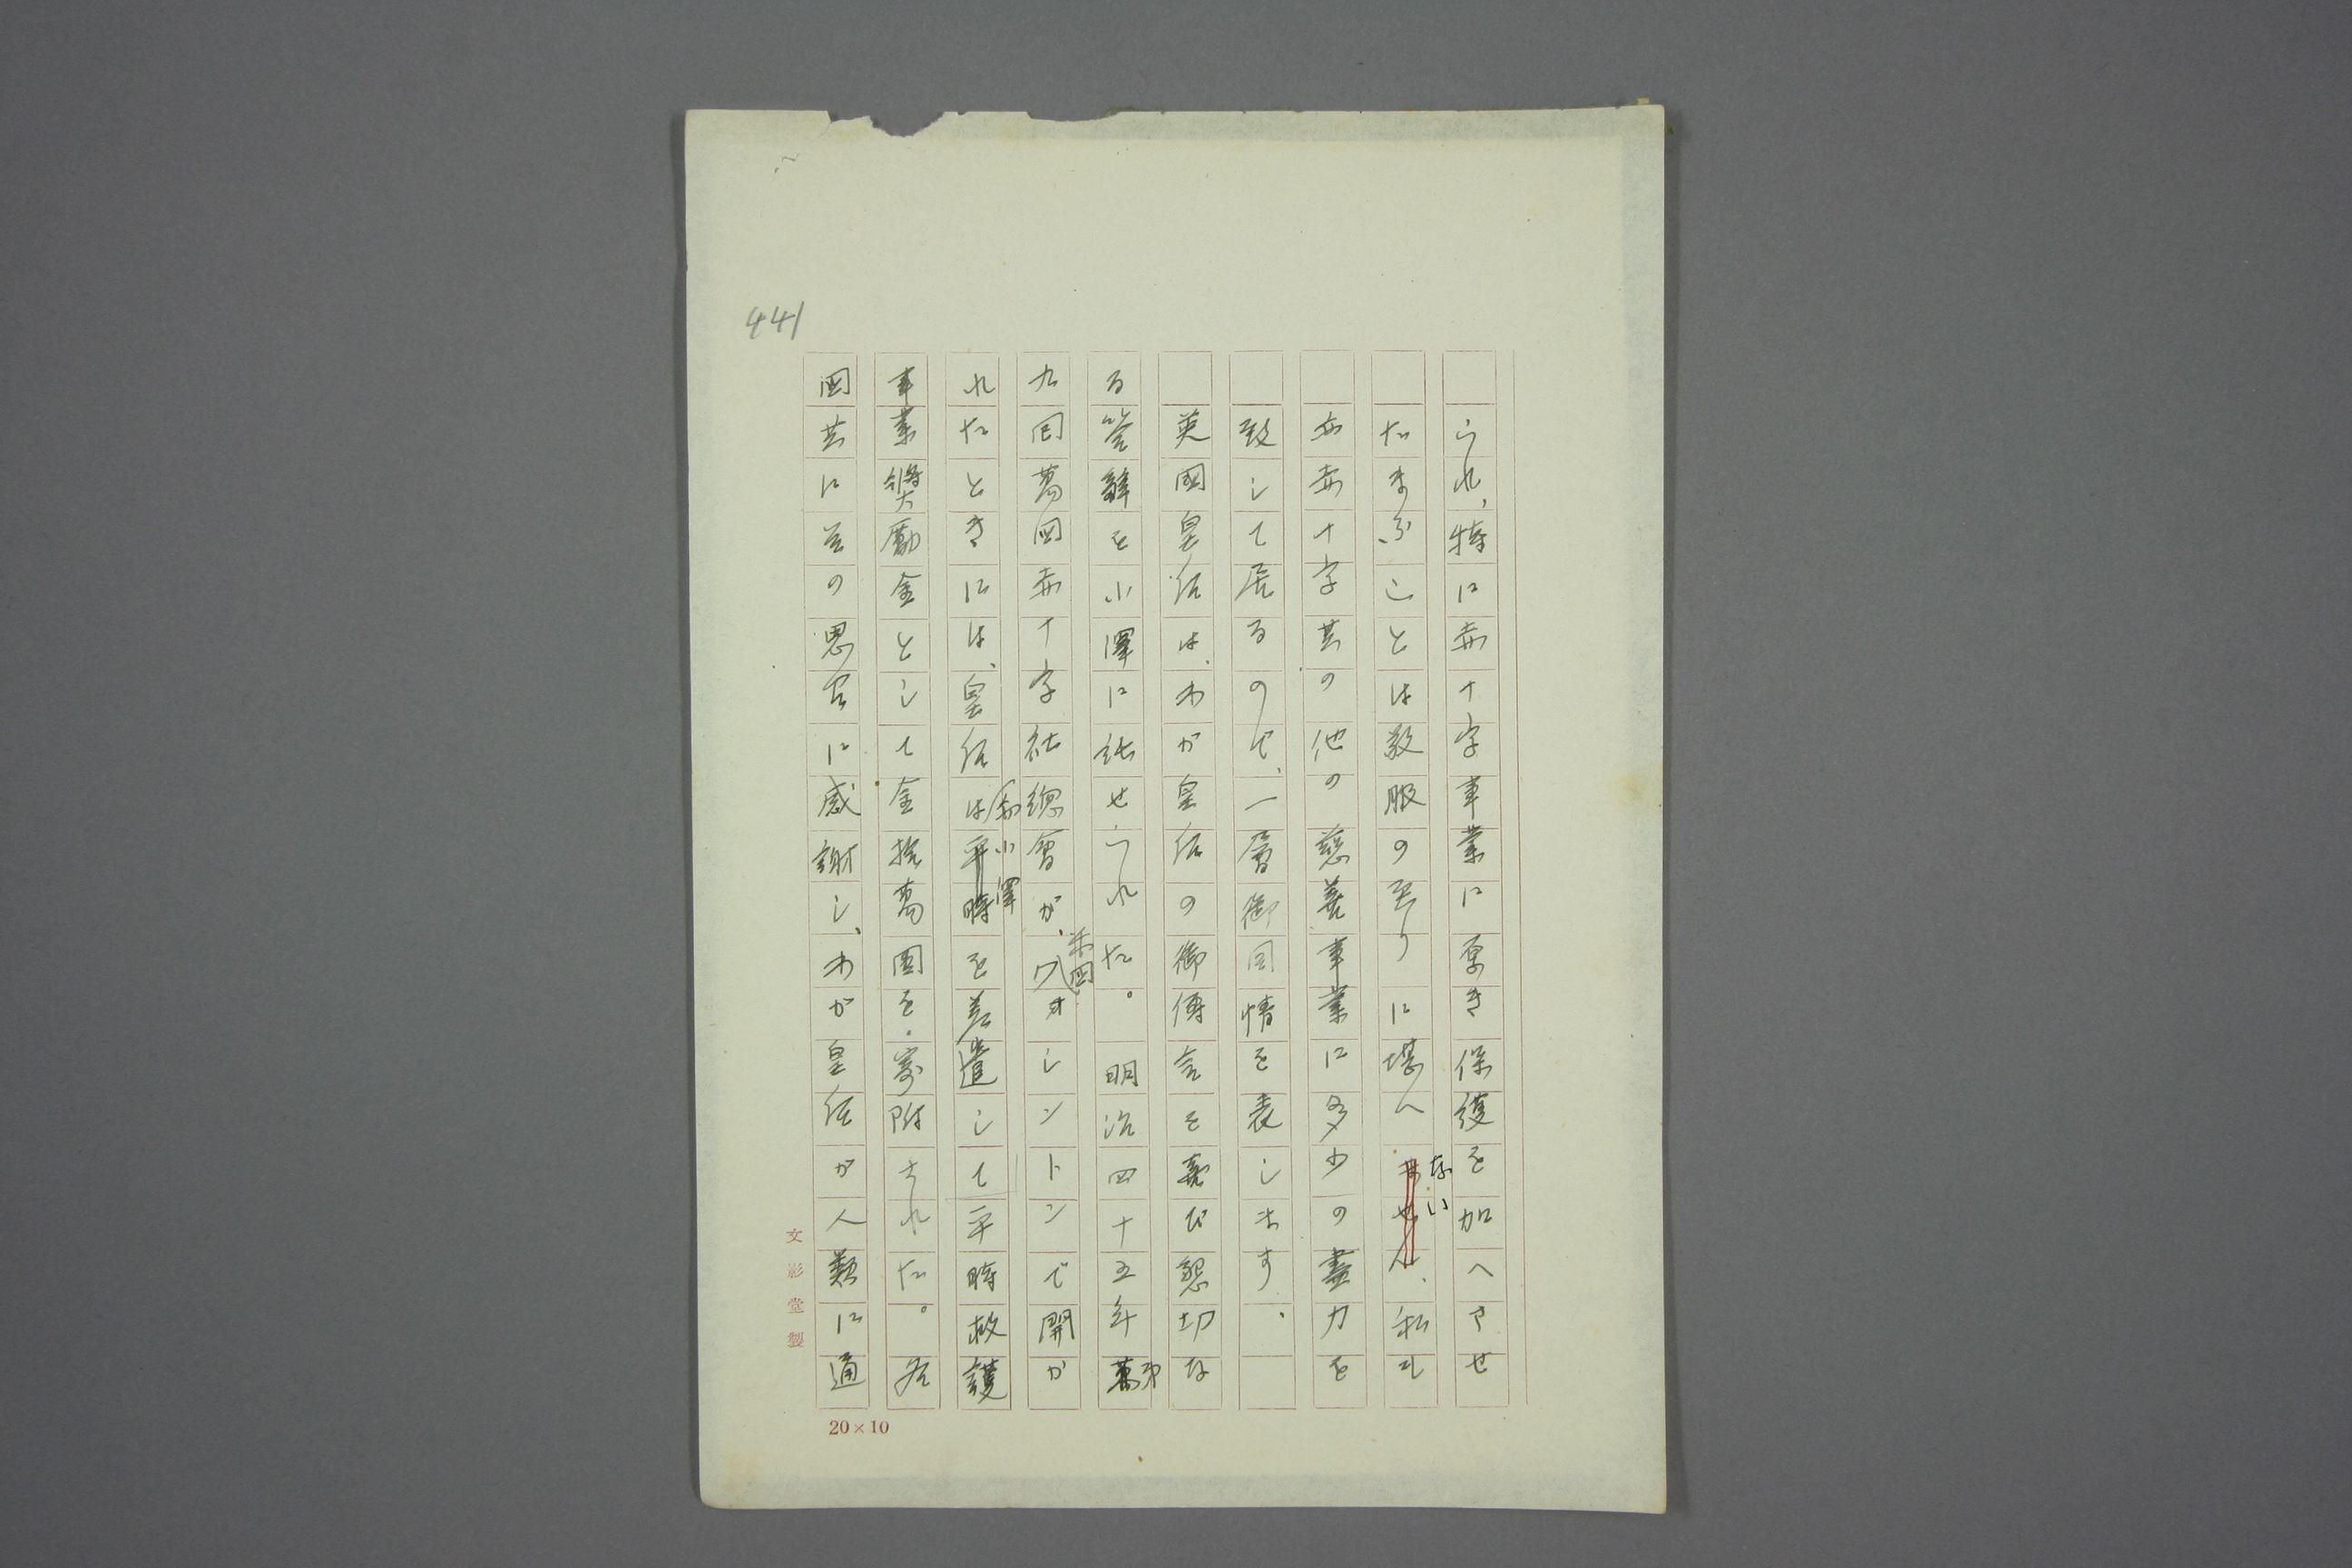 441
られ、特に赤十字事業に厚き保護を加へさせ
たまふことは敬服の至りに堪へない、私も
亦赤十字其の他の慈善事業に多少の盡力を
致して居るので、一層御同情を表します。
英國皇后は、わが皇后の御傳言を喜び懇切な
る答辭を小澤に託せられた。 明治四十五年第
九回萬国赤十字社總會が、米国ワシントンで開か
れたときには、皇后は小澤を差遣して平時救護
事業奬勵金として金拾萬圓を寄附された。各
国共に其の思召に感謝し、わが皇后が人類に通
文影堂製
20×10